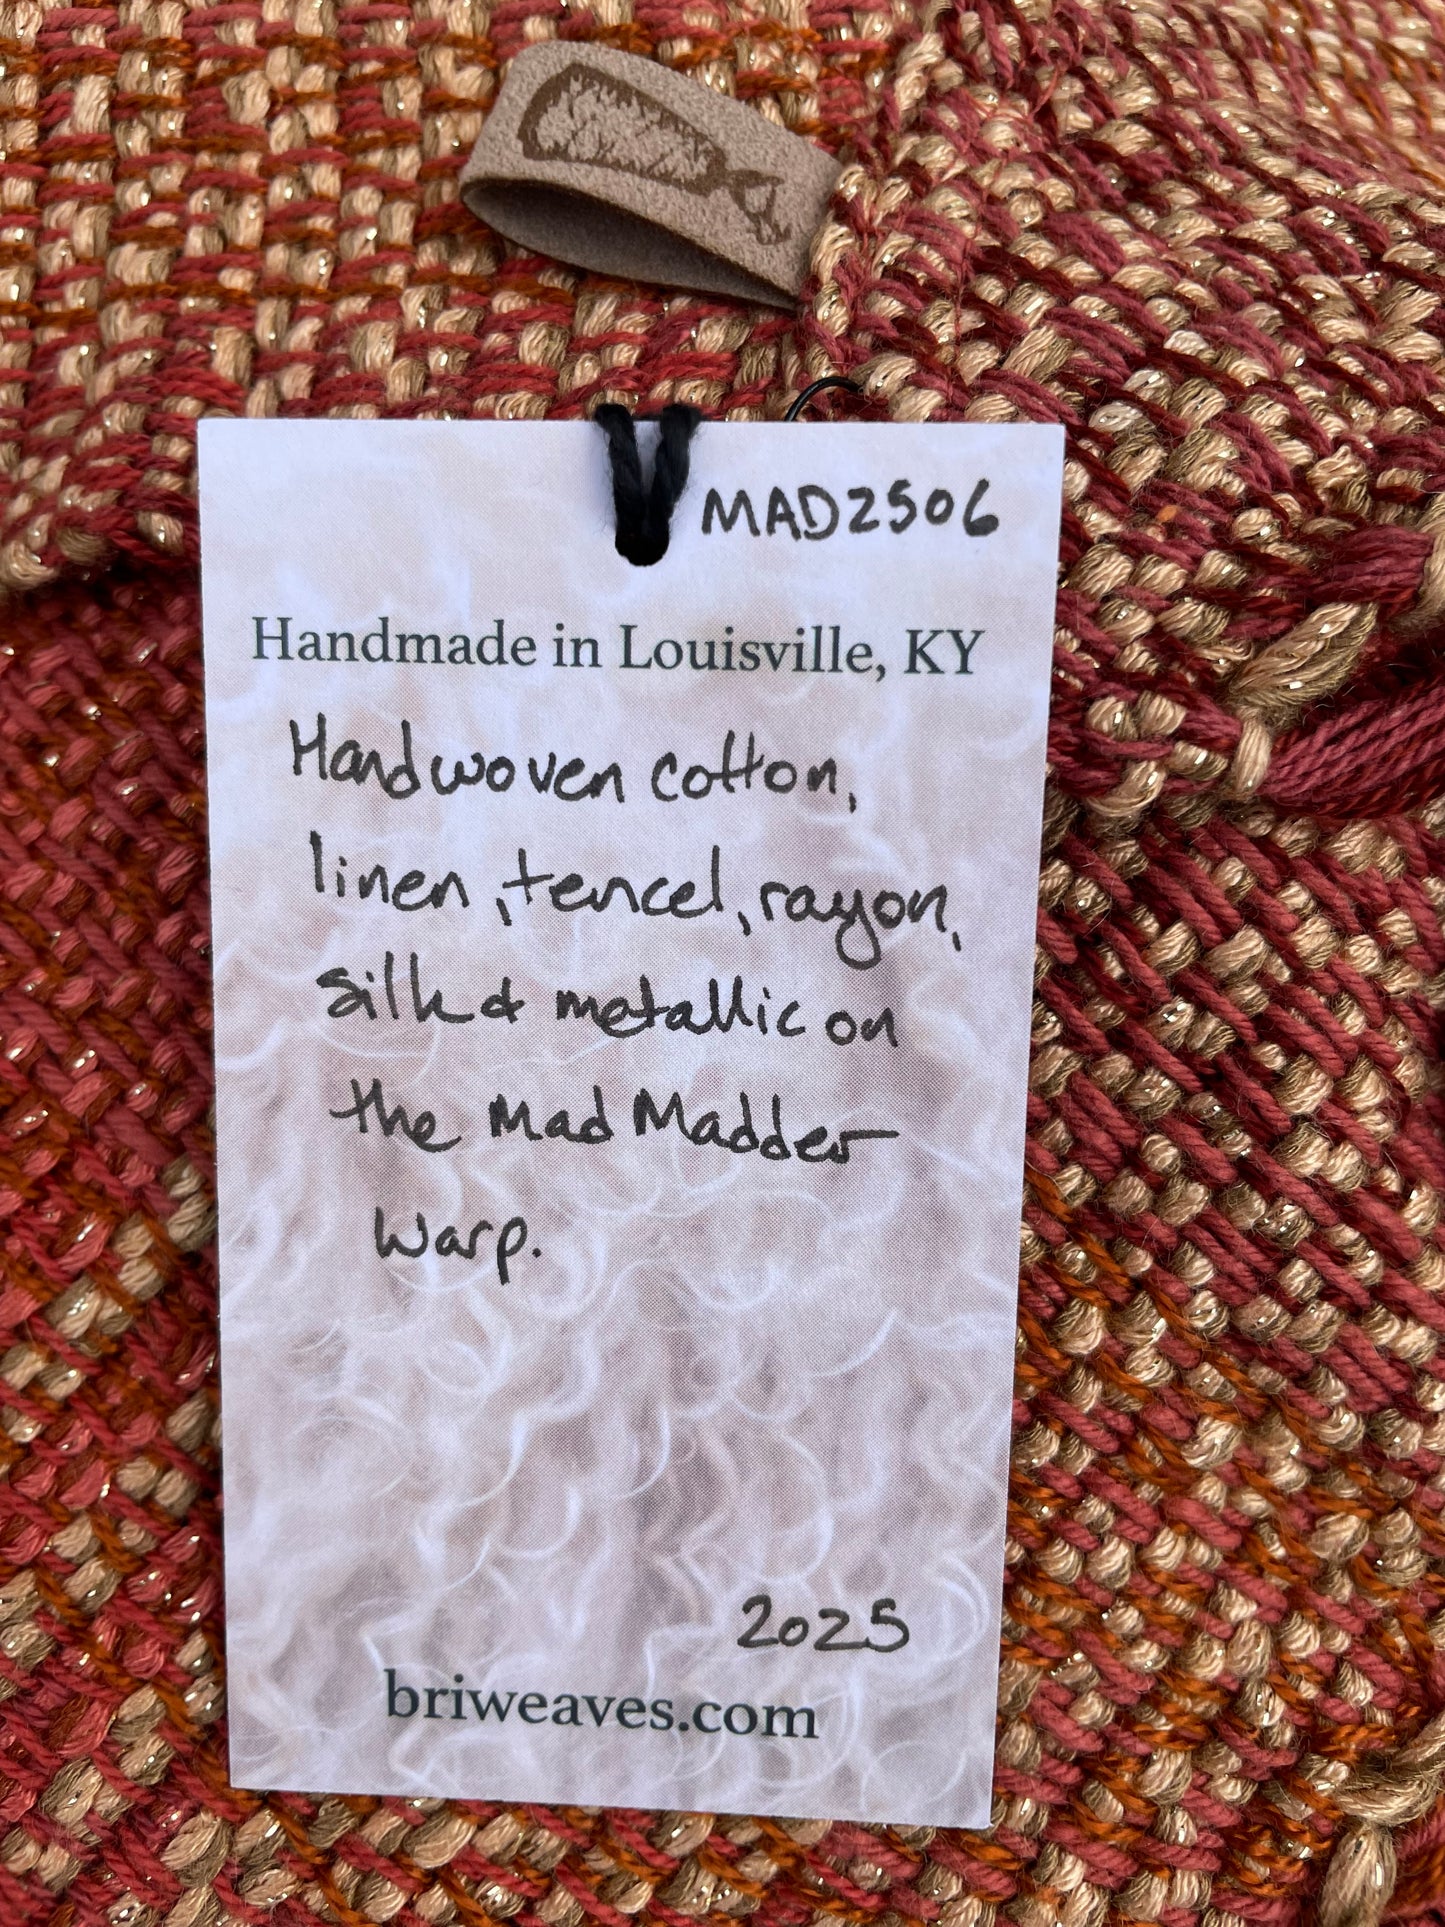 MAD2506
Handmade in Louisville, KY
Handwoven cotton,
linen, tencel, rayon,
silk & metallic on
the Mad Madder
warp.
2025
briweaves.com